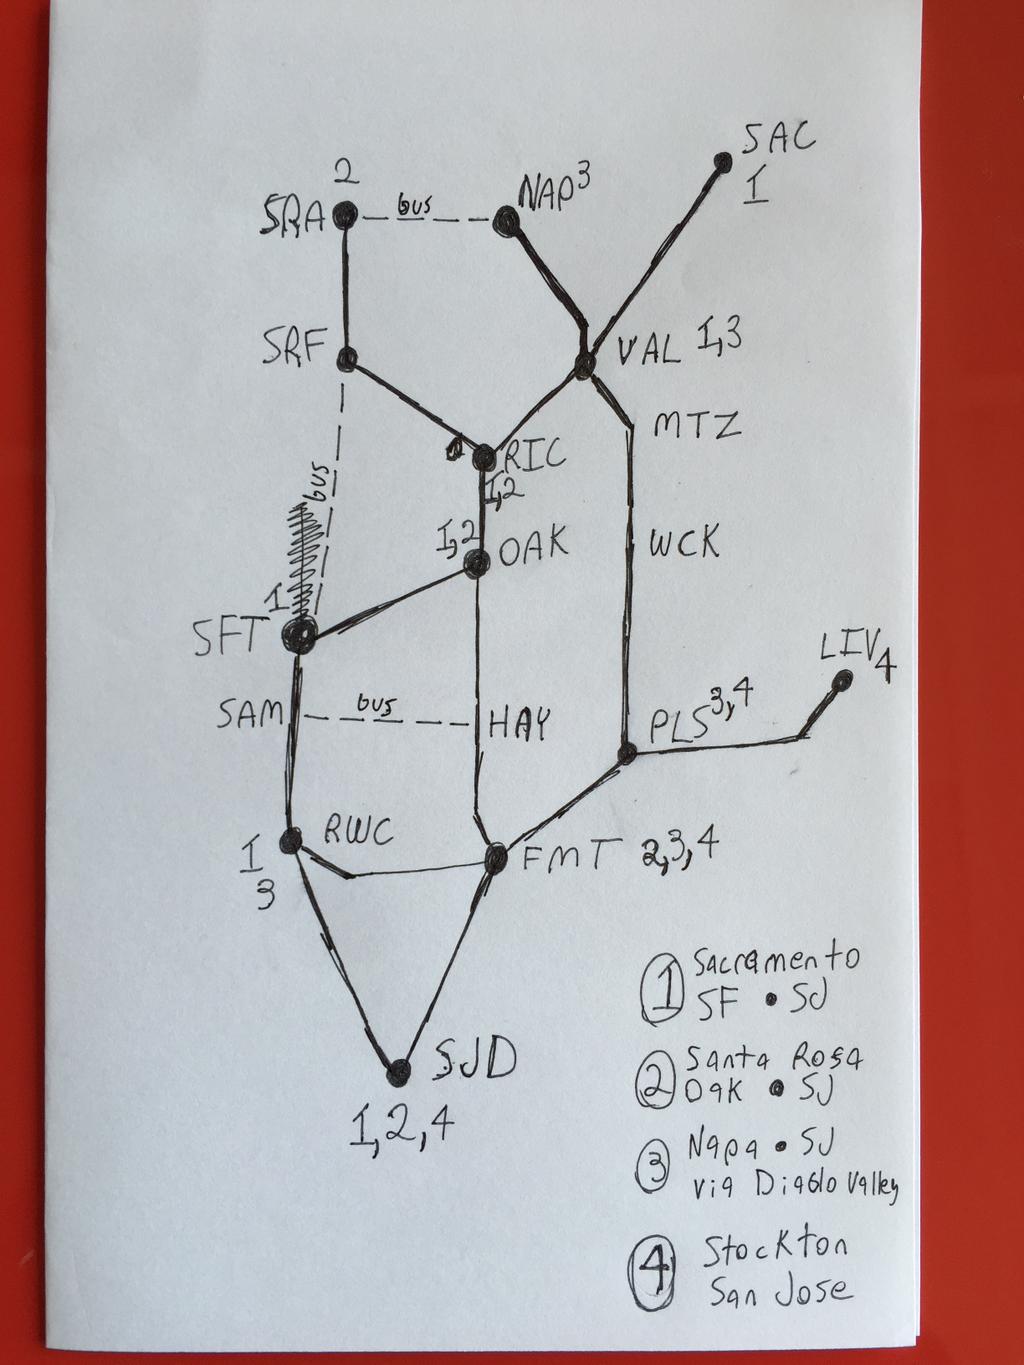 SAC
1
2
SRA
bus
NAP 3
SRF
VAL 1,3
MTZ
RIC
1,2
bus
1,2
OAK
WCK
1
SFT
LIV 4
SAM
bus
HAY
PLS 3,4
RWC
1
3
FMT 2,3,4
SJD
1,2,4
1 Sacramento
SF • SJ
2 Santa Rosa
Oak • SJ
3 Napa • SJ
via Diablo Valley
4 Stockton
San Jose